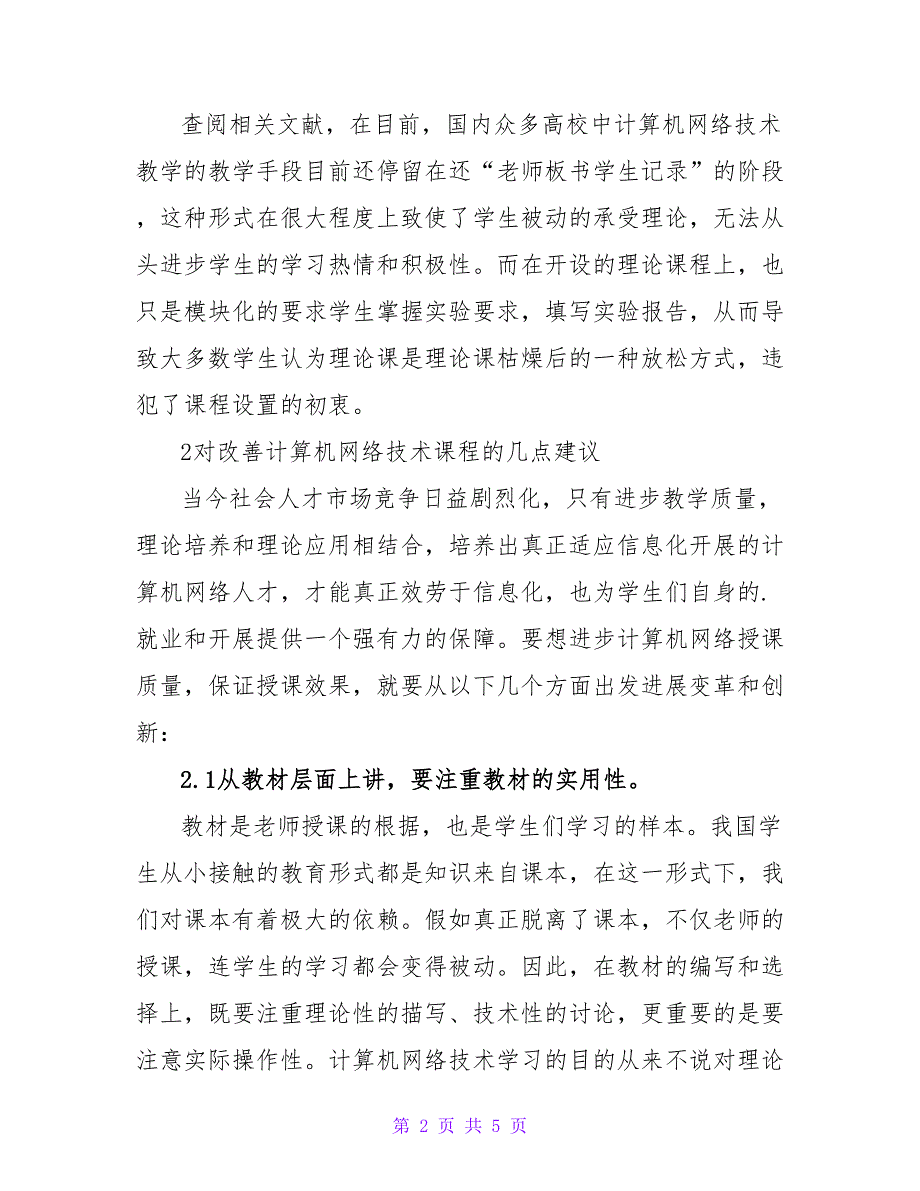 查阅相关文献，在目前，国内众多高校中计算机网络技术
教学的教学手段目前还停留在还“老师板书学生记录”的阶段
，这种形式在很大程度上致使了学生被动的承受理论，无法从
头进步学生的学习热情和积极性。而在开设的理论课程上，也
只是模块化的要求学生掌握实验要求，填写实验报告，从而导
致大多数学生认为理论课是理论课枯燥后的一种放松方式，违
犯了课程设置的初衷。
2对改善计算机网络技术课程的几点建议
当今社会人才市场竞争日益剧烈化，只有进步教学质量，
理论培养和理论应用相结合，培养出真正适应信息化开展的计
算机网络人才，才能真正效劳于信息化，也为学生们自身的.
就业和开展提供一个强有力的保障。要想进步计算机网络授课
质量，保证授课效果，就要从以下几个方面出发进展变革和创
新：
2.1从教材层面上讲，要注重教材的实用性。
教材是老师授课的根据，也是学生们学习的样本。我国学
生从小接触的教育形式都是知识来自课本，在这一形式下，我
们对课本有着极大的依赖。假如真正脱离了课本，不仅老师的
授课，连学生的学习都会变得被动。因此，在教材的编写和选
择上，既要注重理论性的描写、技术性的讨论，更重要的是要
注意实际操作性。计算机网络技术学习的目的从来不说对理论
第 2 页 共 5 页